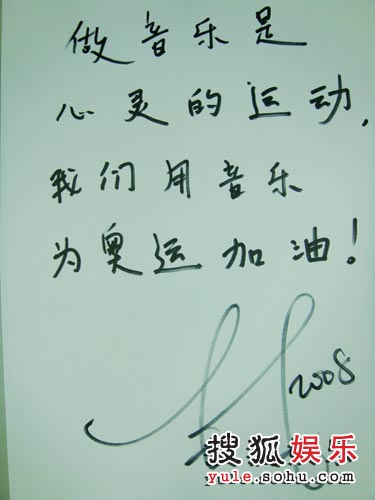 做音乐是
心灵的运动,
我们用音乐
为奥运加油!
2008
搜狐娱乐
yule.sohu.com